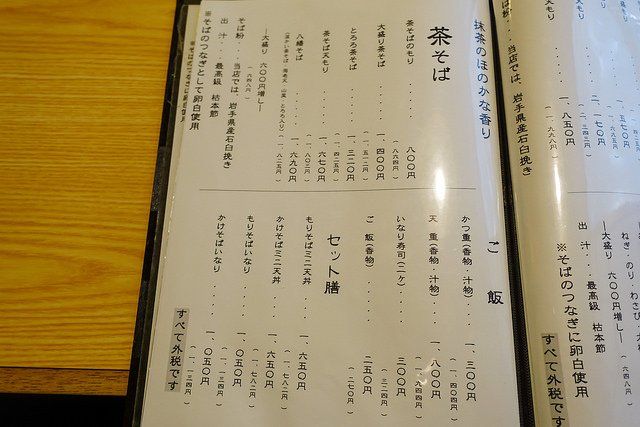 抹茶のほのかな香り
茶そば
茶そばのもり ・・・・ 八〇〇円
（八六四円）
大盛り茶そば ・・・ 一、四〇〇円
（一、五一二円）
とろろ茶そば ・・・ 一、三二〇円
（一、四二五円）
茶そば天もり ・・・ 一、六七〇円
（一、八〇三円）
八幡そば ・・・・ 一、六九〇円
（一、八二五円）
―大盛り 六〇〇円増し―
（六四八円）
そば粉‥ 当店では、岩手県産石臼挽き
出 汁‥ 最高級 枯本節
※そばのつなぎとして卵白使用
ご 飯
かつ重（香物・汁物）・・ 一、三〇〇円
（一、四〇四円）
天 重（香物・汁物）・・ 一、八〇〇円
（一、九四四円）
いなり寿司（二ケ）・・・ 三〇〇円
（三二四円）
ご 飯（香物）・・・・ 二五〇円
（二七〇円）
セット膳
もりそばミニ天丼 ・・ 一、六五〇円
（一、七八二円）
かけそばミニ天丼 ・・ 一、六五〇円
（一、七八二円）
もりそばいなり ・・・ 一、〇五〇円
（一、一三四円）
かけそばいなり ・・・ 一、〇五〇円
（一、一三四円）
すべて外税です
一、八五〇円
（一、九九八円）
当店では、岩手県産石臼挽き
―大盛り 六〇〇円増し―
（六四八円）
出 汁‥ 最高級 枯本節
※そばのつなぎに卵白使用
すべて外税です